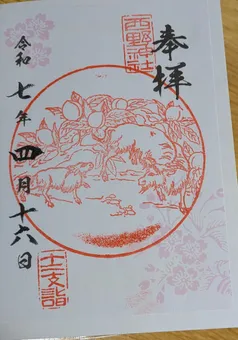 奉拝
西野神社
令和七年四月十六日
十二支詣